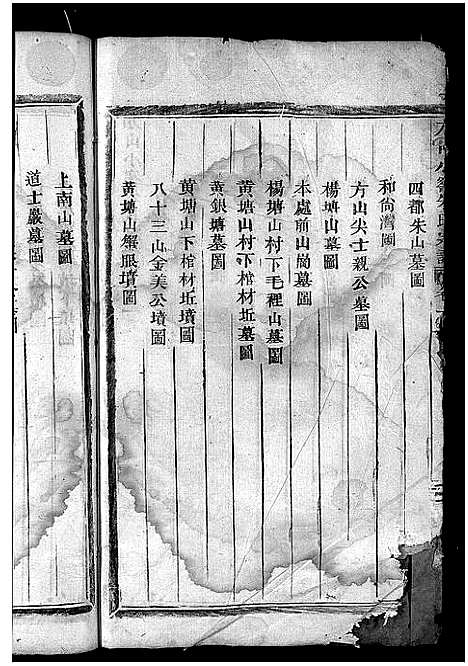 四都朱山墓圖
和尚灣圖
方山尖士親公墓圖
楊塘山墓圖
本處前山崗墓圖
楊塘山村下毛裡山墓圖
黃塘山村下棺材坵墓圖
黃銀塘墓圖
黃塘山下棺材坵墳圖
八十三山金美公墳圖
黃塘山蟹眼墳圖
上南山墓圖
道士巖墓圖